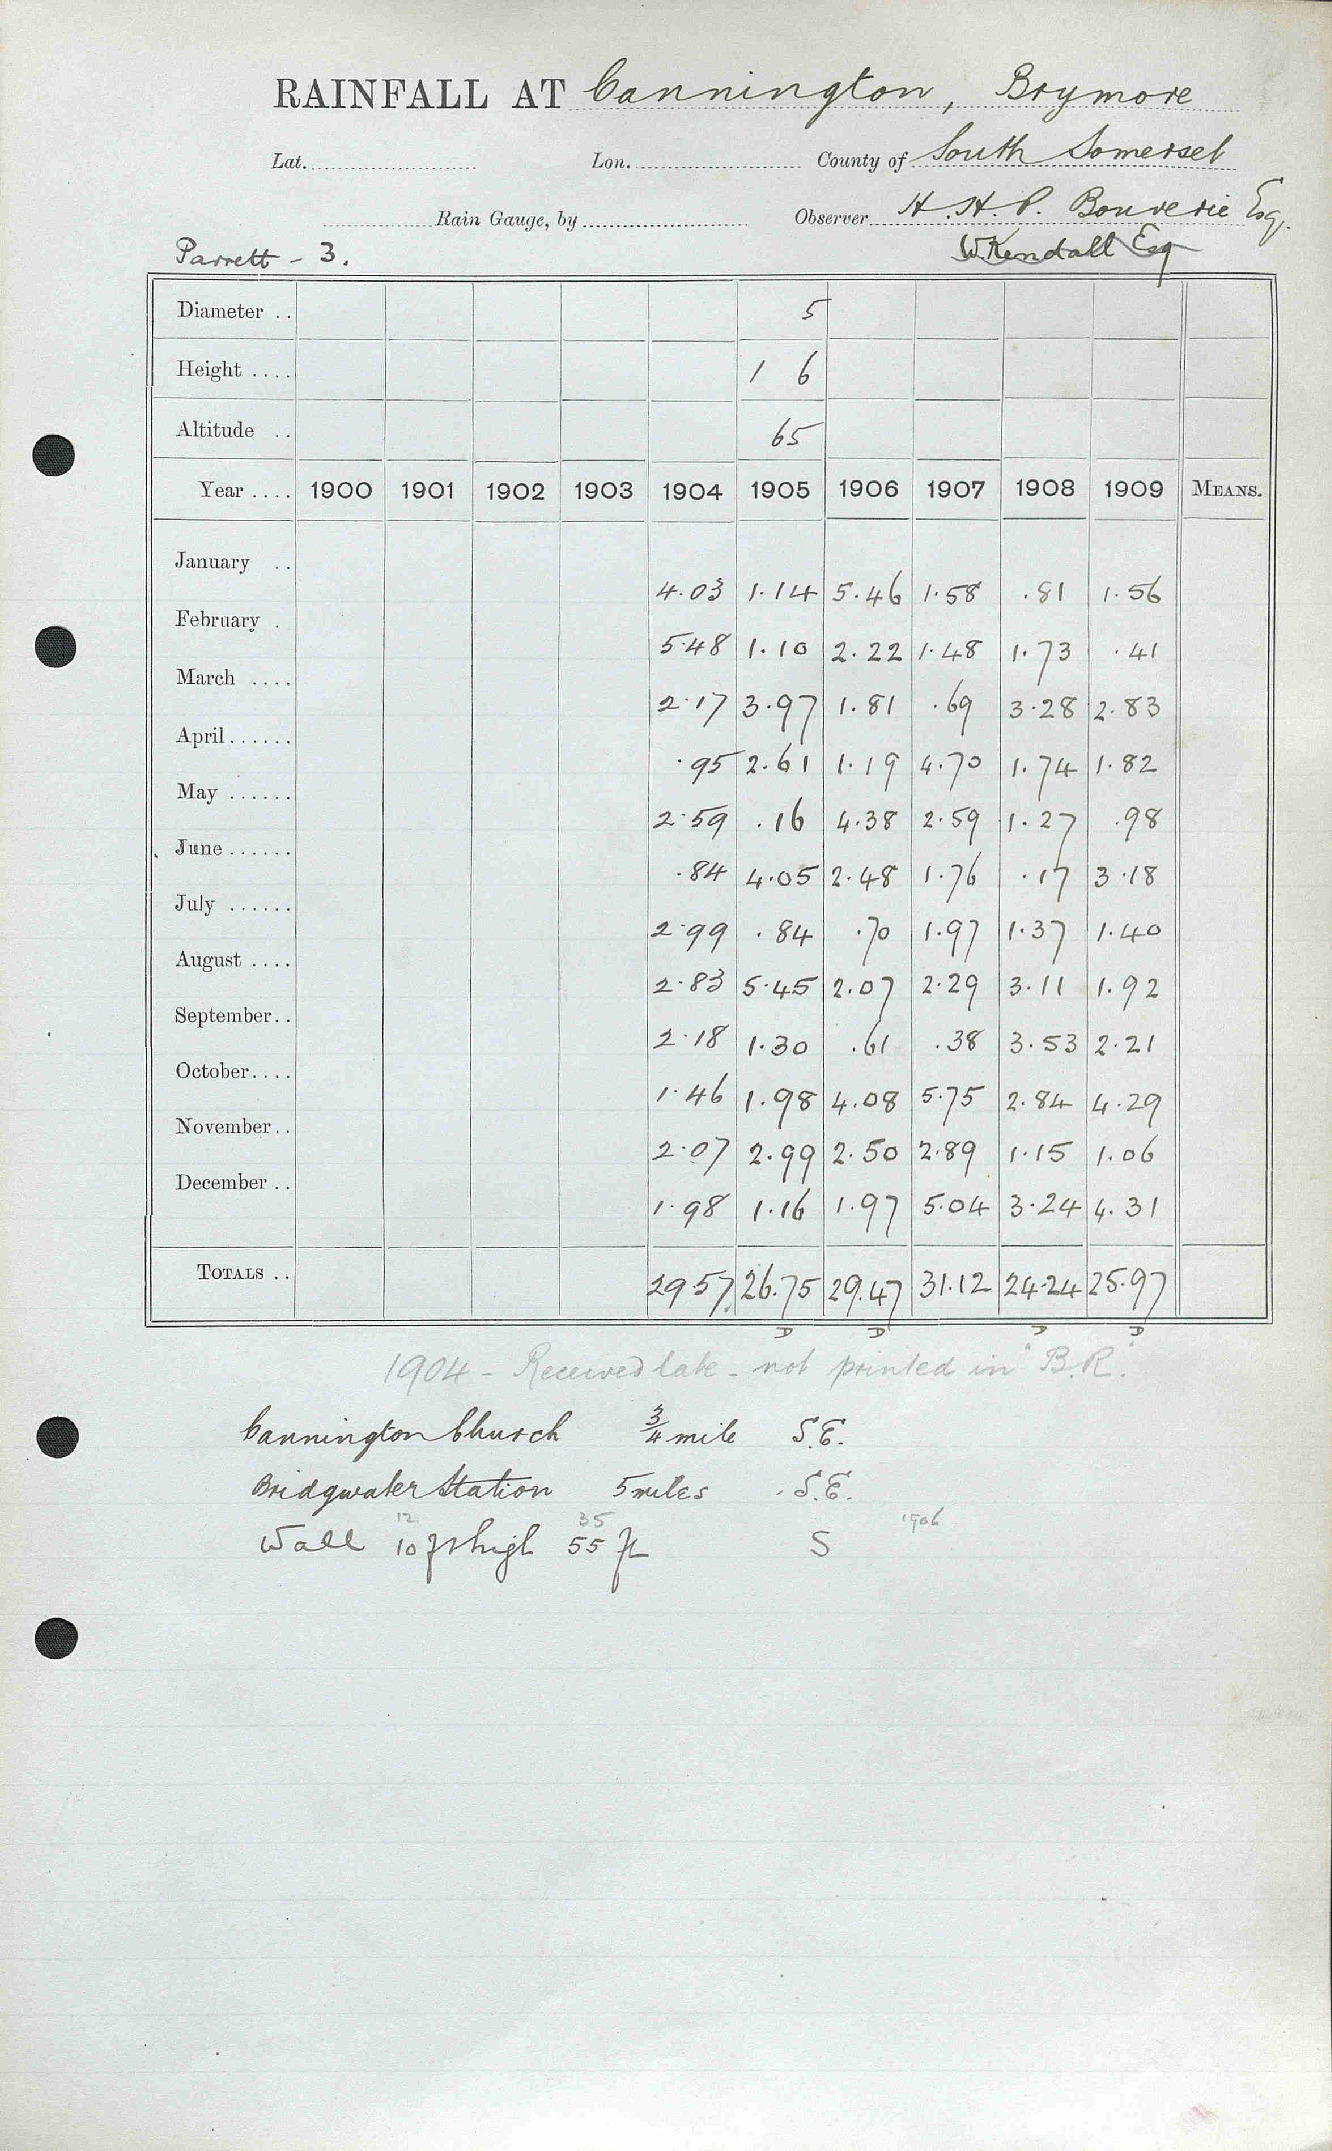 RAINFALL AT Cannington, Brymore
Lat. Lon. County of South Somerset
Rain Gauge, by Observer H. H. P. Bouverie Esq.
Parrett - 3. W Kendall Esq
Diameter .. 5
Height .... 1 6
Altitude .. 65
Year .... 1900 1901 1902 1903 1904 1905 1906 1907 1908 1909 MEANS.
January .. 4.03 1.14 5.46 1.58 .81 1.56
February . 5.48 1.10 2.22 1.48 1.73 .41
March .... 2.17 3.97 1.81 .69 3.28 2.83
April...... .95 2.61 1.19 4.70 1.74 1.82
May ...... 2.59 .16 4.38 2.59 1.27 .98
June...... .84 4.05 2.48 1.76 .17 3.18
July ...... 2.99 .84 .70 1.97 1.37 1.40
August .... 2.83 5.45 2.07 2.29 3.11 1.92
September.. 2.18 1.30 .61 .38 3.53 2.21
October.... 1.46 1.98 4.08 5.75 2.84 4.29
November.. 2.07 2.99 2.50 2.89 1.15 1.06
December .. 1.98 1.16 1.97 5.04 3.24 4.31
TOTALS .. 29 57 26.75 29.47 31.12 24.24 25.97
D D D D
1904 - Received late - not printed in "B.R."
Cannington Church 3/4 mile S.E.
Bridgwater Station 5 miles S.E.
12 35 1906
Wall 10 ft high 55 ft S